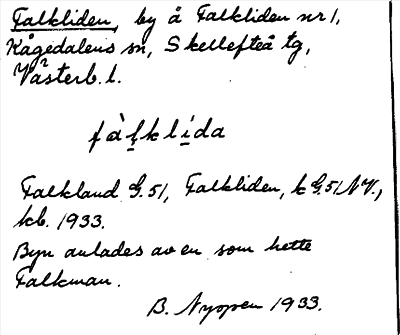 Falkliden, by å Falkliden nr 1,
Kågedalens sn, Skellefteå tg,
Västerb. l.
fàlklída
Falkland G.51, Falkliden, k G.51 NV.,
kb. 1933.
Byn anlades av en som hette
Falkman.
B. Nyopen 1933.